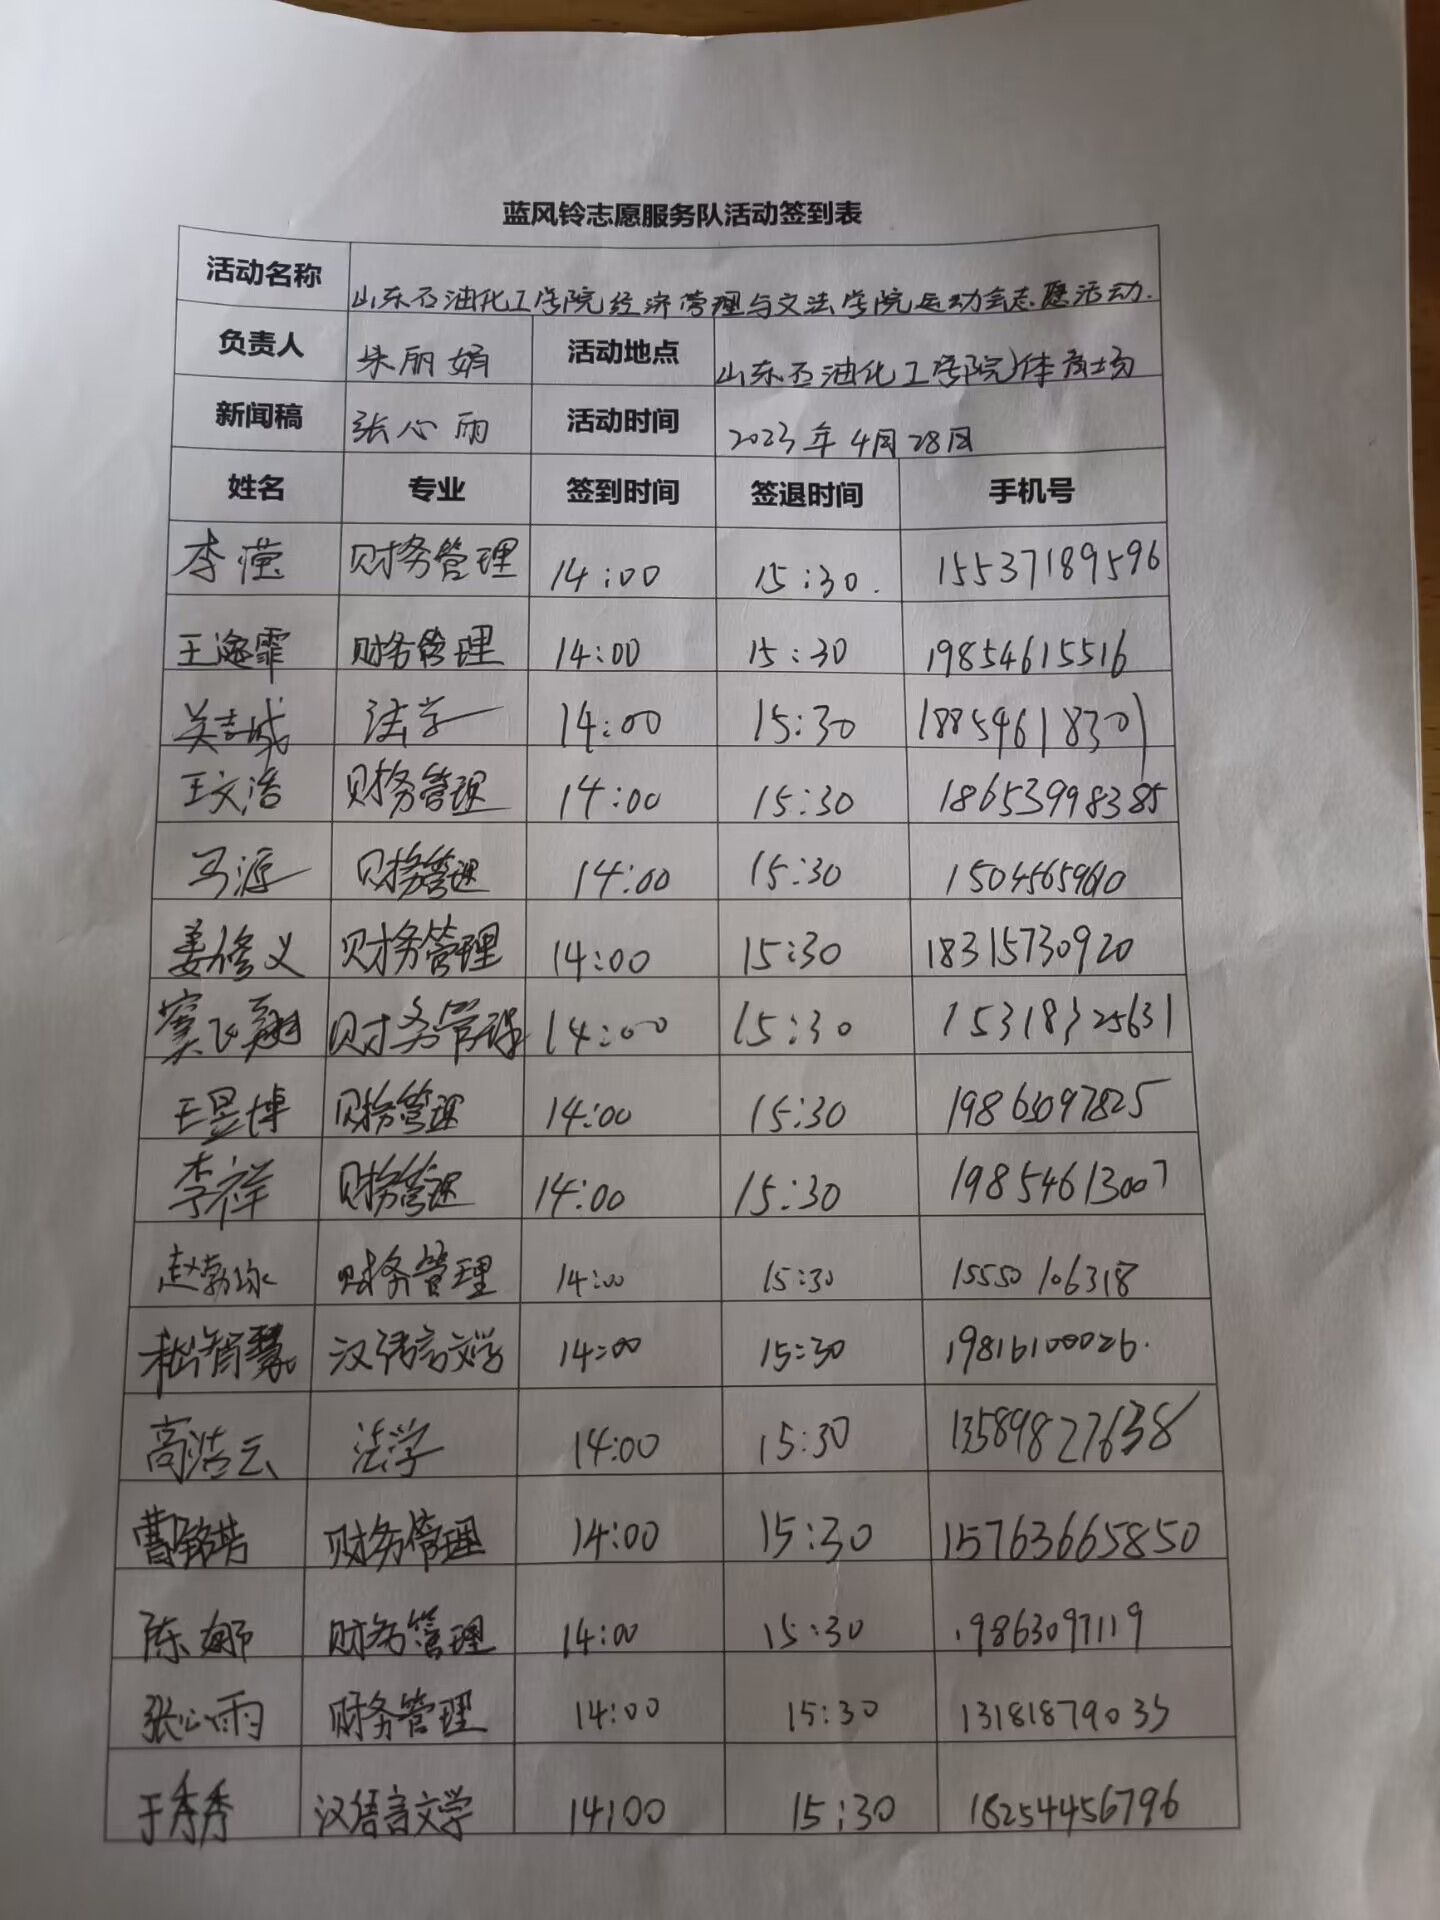 蓝风铃志愿服务队活动签到表
活动名称 山东石油化工学院经济管理与文法学院运动会志愿活动.
负责人 朱丽娟 活动地点 山东石油化工学院体育场
新闻稿 张心雨 活动时间 2023年4月28日
姓名 专业 签到时间 签退时间 手机号
李滢 财务管理 14:00 15:30. 15537189596
王逸霏 财务管理 14:00 15:30 19854615516
吴志城 法学 14:00 15:30 18854618301
王文浩 财务管理 14:00 15:30 18653998385
马源 财务管理 14:00 15:30 15045659610
姜修义 财务管理 14:00 15:30 18315730920
窦飞翔 财务管理 14:00 15:30 15318325631
王昱博 财务管理 14:00 15:30 19863097825
李祥 财务管理 14:00 15:30 19854613007
赵勃冰 财务管理 14:00 15:30 15550106318
嵇智慧 汉语言文学 14:00 15:30 19816100026.
高浩云 法学 14:00 15:30 13589827638
曹铭芳 财务管理 14:00 15:30 15763665850
陈娜 财务管理 14:00 15:30 19863097119
张心雨 财务管理 14:00 15:30 13181879035
于秀秀 汉语言文学 14:00 15:30 18254456796